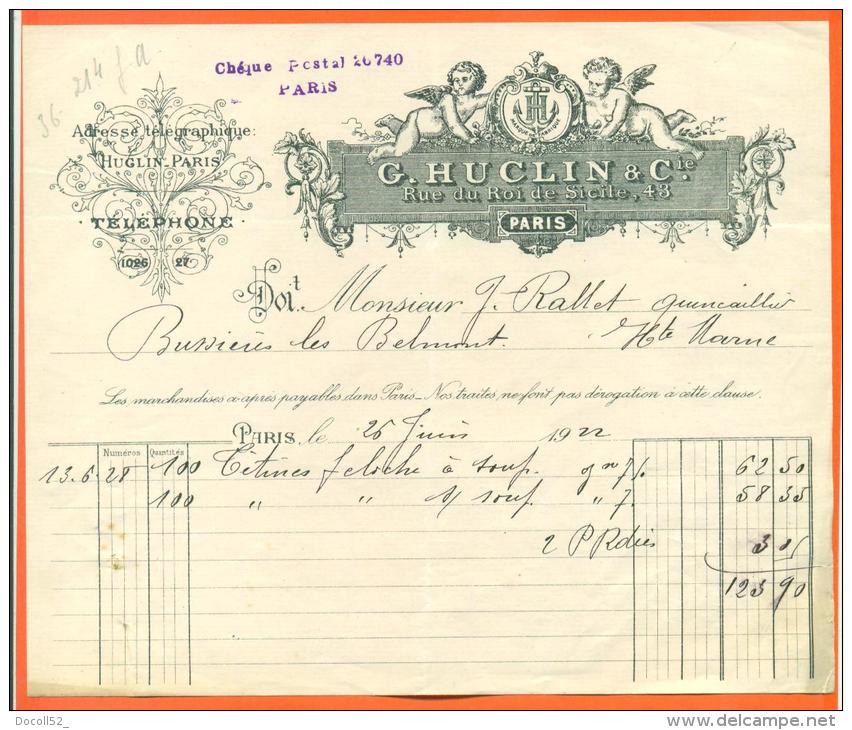 36. 214 f.a
Chéque Postal 20740
PARIS
Adresse télégraphique:
HUCLIN-PARIS
TÉLÉPHONE
1026 27
H
MARQUE DE FABRIQUE
G. HUCLIN & Cie
Rue du Roi de Sicile, 43
PARIS
Doit Monsieur J. Rallet quincaillier
Bussières les Belmont. Hte Marne
Les marchandises ci-après payables dans Paris_Nos traites ne font pas dérogation à cette clause.
PARIS, le 26 Juin 1922
Numéros Quantités
13.6.28 100 Tétines f cloche à soup. 7% 62 50
100 " " s/ soup. " 7. 58 35
2 P 3
123 90
Docoll52_
delcampe.net